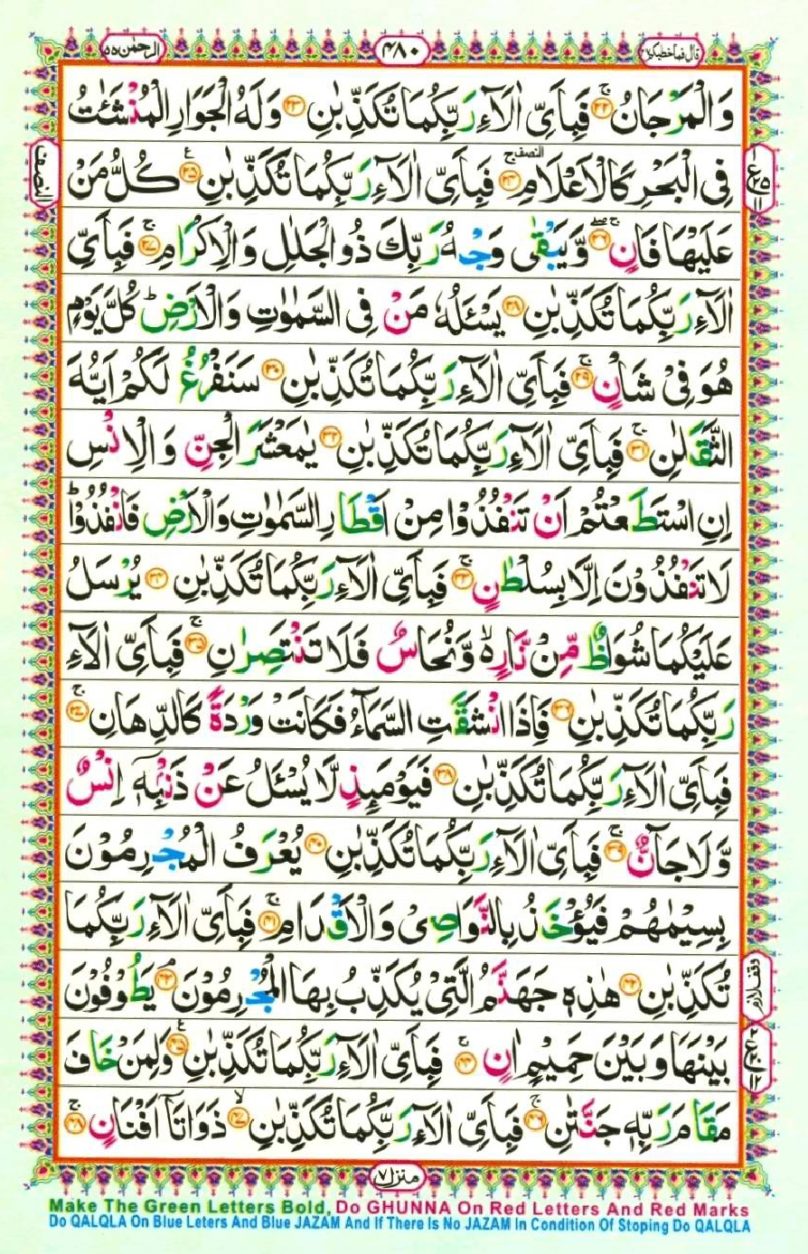 قال فما خطبکم ۲۷
۴۸۰
الرحمٰن ۵۵
وَالْمَرْجَانُ ۚ﴿۲۲﴾ فَبِاَىِّ اٰلَآءِ رَبِّكُمَا تُكَذِّبٰنِ ﴿۲۳﴾ وَلَهُ الْجَوَارِ الْمُنْشَئٰتُ
فِى الْبَحْرِ كَالْاَعْلَامِ ۚ﴿۲۴﴾ فَبِاَىِّ اٰلَآءِ رَبِّكُمَا تُكَذِّبٰنِ ﴿۲۵﴾ كُلُّ مَنْ
عَلَيْهَا فَانٍ ۚۖ﴿۲۶﴾ وَّيَبْقٰى وَجْهُ رَبِّكَ ذُو الْجَلٰلِ وَالْاِكْرَامِ ۚ﴿۲۷﴾ فَبِاَىِّ
اٰلَآءِ رَبِّكُمَا تُكَذِّبٰنِ ﴿۲۸﴾ يَسْـَٔلُهٗ مَنْ فِى السَّمٰوٰتِ وَالْاَرْضِ ؕ كُلَّ يَوْمٍ
هُوَ فِىْ شَاْنٍ ۚ﴿۲۹﴾ فَبِاَىِّ اٰلَآءِ رَبِّكُمَا تُكَذِّبٰنِ ﴿۳۰﴾ سَنَفْرُغُ لَكُمْ اَيُّهَ
الثَّقَلٰنِ ۚ﴿۳۱﴾ فَبِاَىِّ اٰلَآءِ رَبِّكُمَا تُكَذِّبٰنِ ﴿۳۲﴾ يٰمَعْشَرَ الْجِنِّ وَالْاِنْسِ
اِنِ اسْتَطَعْتُمْ اَنْ تَنْفُذُوْا مِنْ اَقْطَارِ السَّمٰوٰتِ وَالْاَرْضِ فَانْفُذُوْا ؕ
لَا تَنْفُذُوْنَ اِلَّا بِسُلْطٰنٍ ۚ﴿۳۳﴾ فَبِاَىِّ اٰلَآءِ رَبِّكُمَا تُكَذِّبٰنِ ﴿۳۴﴾ يُرْسَلُ
عَلَيْكُمَا شُوَاظٌ مِّنْ نَّارٍ ۙ وَّنُحَاسٌ فَلَا تَنْتَصِرٰنِ ۚ﴿۳۵﴾ فَبِاَىِّ اٰلَآءِ
رَبِّكُمَا تُكَذِّبٰنِ ﴿۳۶﴾ فَاِذَا انْشَقَّتِ السَّمَآءُ فَكَانَتْ وَرْدَةً كَالدِّهَانِ ۚ﴿۳۷﴾
فَبِاَىِّ اٰلَآءِ رَبِّكُمَا تُكَذِّبٰنِ ﴿۳۸﴾ فَيَوْمَئِذٍ لَّا يُسْـَٔلُ عَنْ ذَنْۢبِهٖۤ اِنْسٌ
وَّلَا جَآنٌّ ۚ﴿۳۹﴾ فَبِاَىِّ اٰلَآءِ رَبِّكُمَا تُكَذِّبٰنِ ﴿۴۰﴾ يُعْرَفُ الْمُجْرِمُوْنَ
بِسِيْمٰهُمْ فَيُؤْخَذُ بِالنَّوَاصِىْ وَالْاَقْدَامِ ۚ﴿۴۱﴾ فَبِاَىِّ اٰلَآءِ رَبِّكُمَا
تُكَذِّبٰنِ ﴿۴۲﴾ هٰذِهٖ جَهَنَّمُ الَّتِىْ يُكَذِّبُ بِهَا الْمُجْرِمُوْنَ ۘ﴿۴۳﴾ يَطُوْفُوْنَ
بَيْنَهَا وَبَيْنَ حَمِيْمٍ اٰنٍ ۚ﴿۴۴﴾ فَبِاَىِّ اٰلَآءِ رَبِّكُمَا تُكَذِّبٰنِ ﴿۴۵﴾ وَلِمَنْ خَافَ
مَقَامَ رَبِّهٖ جَنَّتٰنِ ۚ﴿۴۶﴾ فَبِاَىِّ اٰلَآءِ رَبِّكُمَا تُكَذِّبٰنِ ۙ﴿۴۷﴾ ذَوَاتَاۤ اَفْنَانٍ ۚ﴿۴۸﴾
النصف
وقف لازم
منزل ۷
Make The Green Letters Bold, Do GHUNNA On Red Letters And Red Marks
Do QALQLA On Blue Leters And Blue JAZAM And If There Is No JAZAM In Condition Of Stoping Do QALQLA